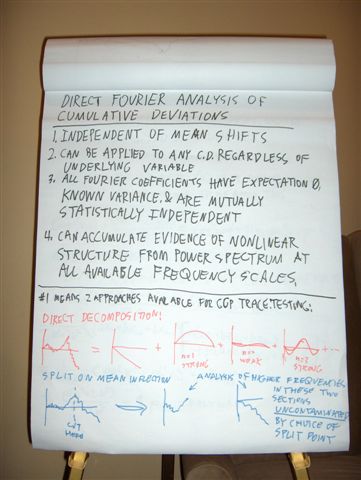 DIRECT FOURIER ANALYSIS OF
CUMULATIVE DEVIATIONS
1. INDEPENDENT OF MEAN SHIFTS
2. CAN BE APPLIED TO ANY C.D. REGARDLESS OF
UNDERLYING VARIABLE
3. ALL FOURIER COEFFICIENTS HAVE EXPECTATION 0,
KNOWN VARIANCE, & ARE MUTUALLY
STATISTICALLY INDEPENDENT
4. CAN ACCUMULATE EVIDENCE OF NONLINEAR
STRUCTURE FROM POWER SPECTRUM AT
ALL AVAILABLE FREQUENCY SCALES.
#1 MEANS 2 APPROACHES AVAILABLE FOR GCP TRACE TESTING:
DIRECT DECOMPOSITION:
= + + + + ...
n=1
STRONG
n=2
WEAK
n=3
STRONG
SPLIT ON MEAN INFLECTION
ANALYSIS OF HIGHER FREQUENCIES
IN THESE TWO
SECTIONS
UNCONTAMINATED
BY CHOICE OF
SPLIT POINT
CUT
HERE